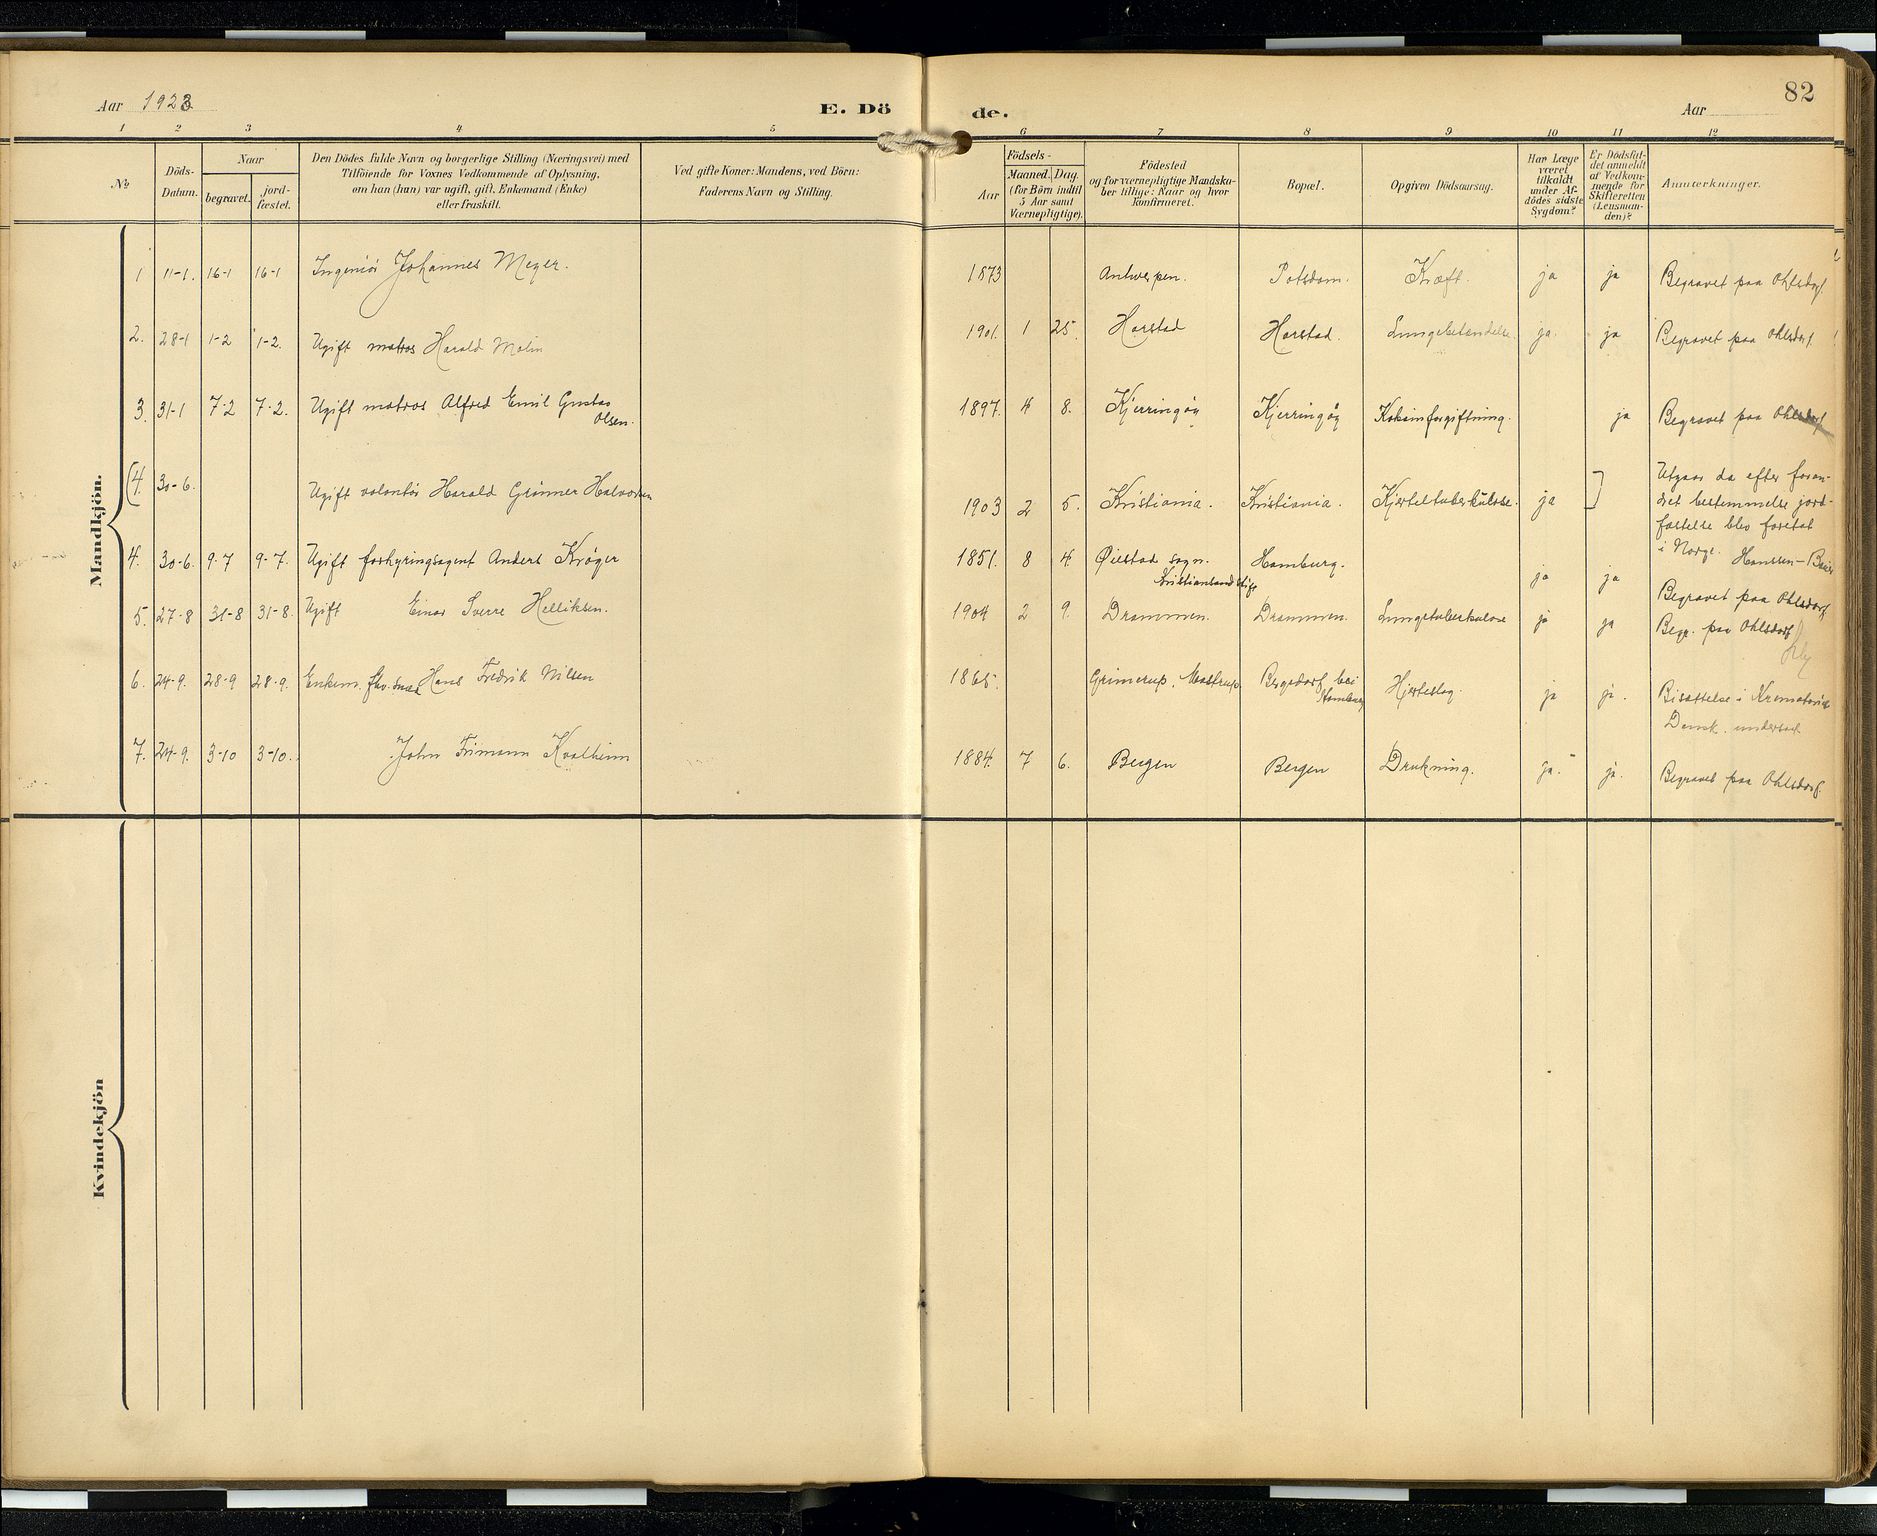 Aar 1923
E. Dö
de.
Aar
82
1 2 3 4 5 6 7 8 9 10 11 12
No
Döds-
Datum.
Naar
begravet.
jord-
fæstet.
Den Dödes fulde Navn og borgerlige Stilling (Næringsvei) med
Tilföiende for Voxnes Vedkommende af Oplysning,
om han (hun) var ugift, gift, Enkemand (Enke)
eller fraskilt.
Ved gifte Koner: Mandens, ved Börn:
Faderens Navn og Stilling.
Födsels-
Aar
Maaned. Dag.
(for Börn indtil
5 Aar samt
Værnepligtige).
Födested
og for værnepligtige Mandska-
ber tillige: Naar og hvor
konfirmeret.
Bopæl.
Opgiven Dödsaarsag.
Har Læge
været
tilkaldt
under Af-
dødes sidste
Sygdom?
Er Dödsfal-
det anmeldt
af Vedkom-
mende for
Skifteretten
(Lensman-
den)?
Anmærkninger.
Mandkjön.
1 11-1. 16-1 16-1 Ingeniör Johannes Meyer. 1873 Antwerpen. Potsdam. Kræft. ja ja Begravet paa Ohlsdorf.
2. 28-1 1-2 1-2. Ugift matros Harald Molin 1901. 1 25. Harstad Harstad. Lungebetændelse. ja. ja Begravet paa Ohlsdorf.
3. 31-1 7-2 7-2. Ugift matros Alfred Emil Gustav
Olsen. 1897. 4 8. Kjerringöy Kjerringöy Kokainforgiftning. ja Begravet paa Ohlsdorf
(4. 30-6. Ugift volontör Harald Grönner Halvorsen 1903 2 5. Kristiania. Kristiania. Kjerteltuberkulose. ja ] Utgaar da efter foran-
dret bestemmelse jord-
fæstelse blev foretat
i Norge. Hanssen-
4. 30-6. 9-7 9-7. Ugift forhyringsagent Anders Kröger 1851. 8 4 Øiestad sogn.
Kristiansand stift Hamburg. ja ja Begravet paa Ohlsdorf.
5. 27-8 31-8 31-8. Ugift Einar Sverre Helliksen. 1904 2 9. Drammen. Drammen. Lungetuberkulose ja ja Begr. paa Ohlsdorf
6. 24-9. 28-9 28-9. Enkem. Hans Fredrik Nilsen 1865. Grimerup, Nastrup Bergedorf bei
Hamburg Hjerteslag. ja ja. Bisættelse i Krematoriet
Dansk undersaat
7. 24-9. 3-10 3-10. John Frimann Kvalheim 1884. 7 6. Bergen Bergen Drukning. ja. ja. Begravet paa Ohlsdorf.
Kvindekjön